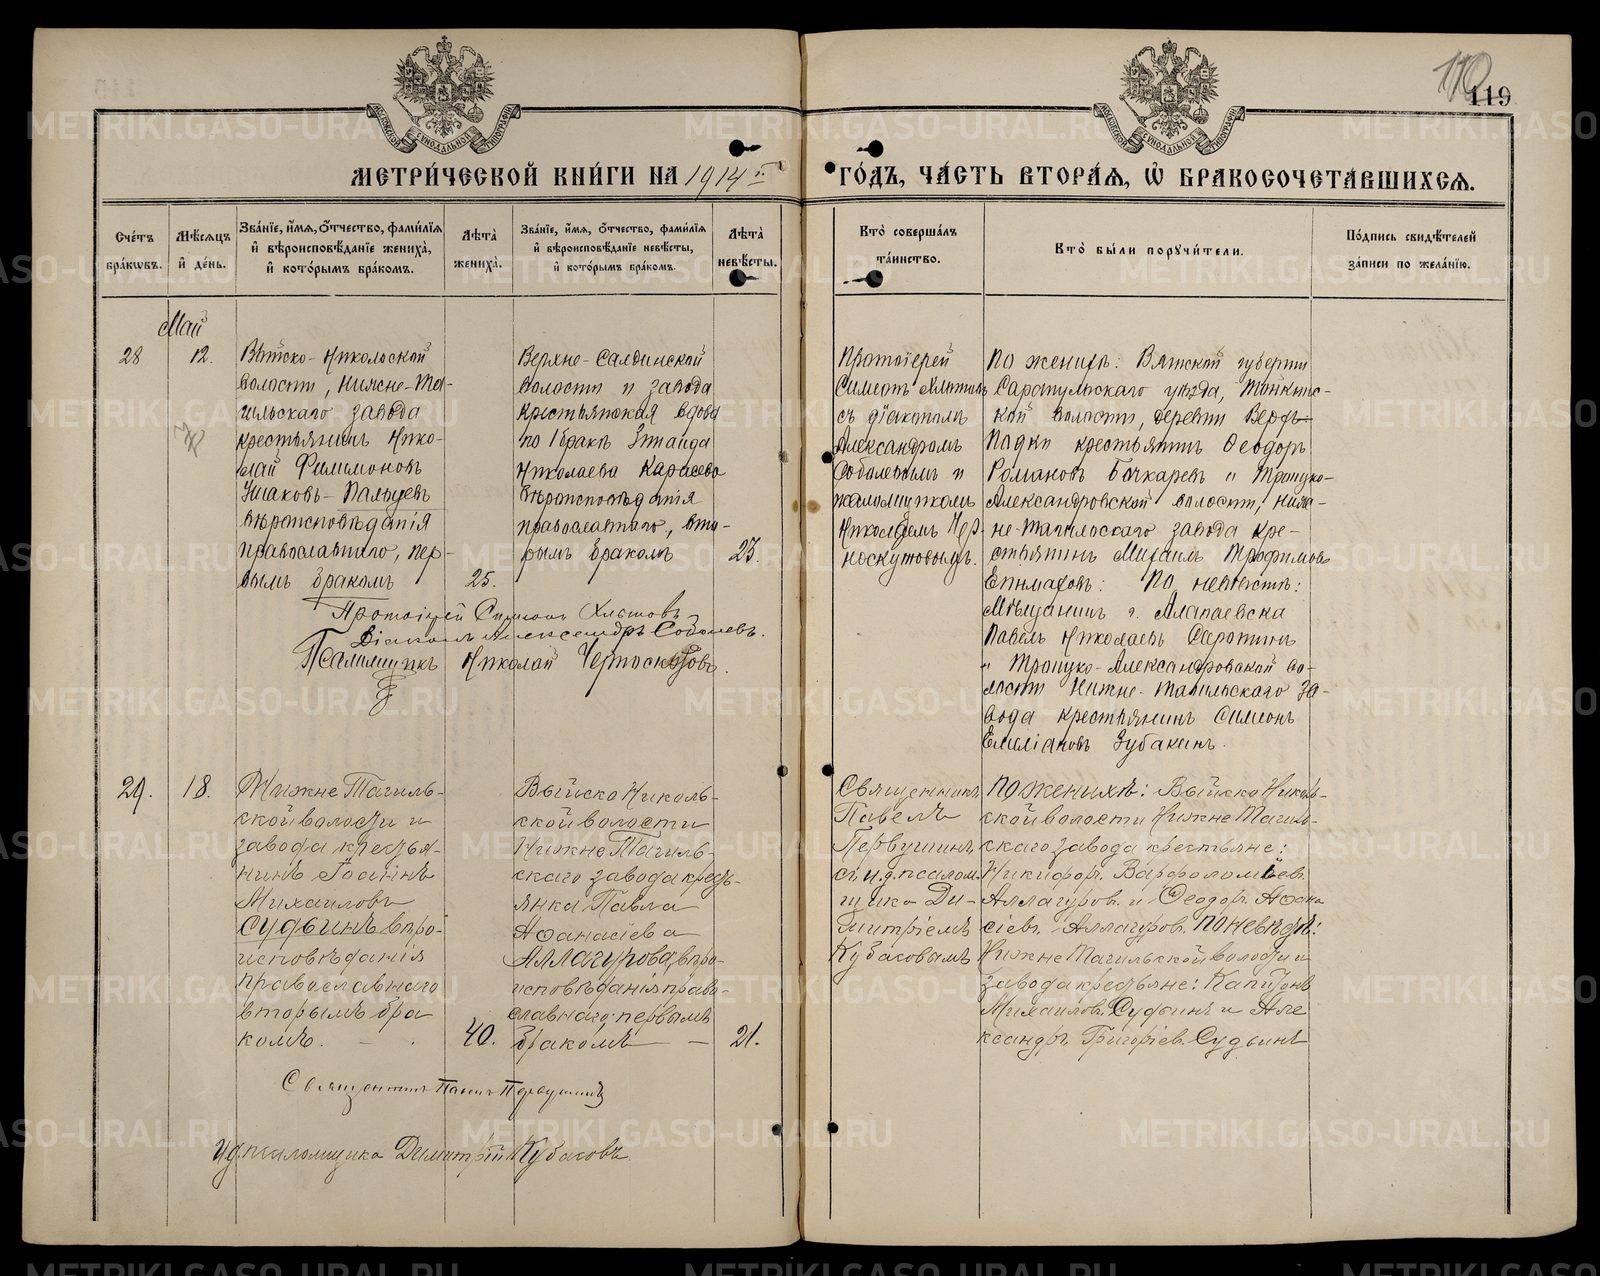 119
МЕТРИ́ЧЕСКОЙ КНИ́ГИ НА 1914 г. ГО́ДЪ, ЧА́СТЬ ВТОРА́Я, Ѡ БРАКОСОЧЕТА́ВШИХСЯ.
Сче́тъ бра́кѡвъ.
Мѣ́сяцъ и́ де́нь.
Зва́нїе, и́мя, о́тчество, фами́лїя и́ вѣроисповѣ́данїе жениха̀, и́ кото́рымъ бра́комъ.
Лѣ́та жениха̀.
Зва́нїе, и́мя, о́тчество, фами́лїя и́ вѣроисповѣ́данїе невѣ́сты, и́ кото́рымъ бра́комъ.
Лѣ́та невѣ́сты.
Кто̀ соверша́лъ та́инство.
Кто̀ бы́ли поручи́тели.
По́дпись свидѣ́телей за́писи по жела́нїю.
Май
28
12.
Выйско-Никольской
волости, Нижне-Та-
гильскаго завода
крестьянинъ Нико-
лай Филимоновъ
Ушаковъ-Пальцевъ
вѣроисповѣданія
православнаго, пер-
вымъ бракомъ
25.
Верхне-Салдинской
волости и завода
крестьянская вдова
по 1 бракѣ Зинаида
Николаева Карасева
вѣроисповѣданія
православнаго, вто-
рымъ бракомъ
23.
Протоіерей
Симеонъ Хлыновъ
съ діакономъ
Александромъ
Соболевымъ и
псаломщикомъ
Николаемъ Чер-
носкутовымъ.
По женихѣ: Вятской губерніи
Сарапульскаго уѣзда,
кой волости, деревни
крестьянинъ Ѳеодоръ
Романовъ Бочкаревъ и Троицко-
Александровской волости, Ниж-
не-Тагильскаго завода кре-
стьянинъ Михаилъ Трофимовъ
Епимаховъ: По невѣстѣ:
Мѣщанинъ г. Алапаевска
Павелъ Николаевъ Сиротинъ
и Троицко-Александровской во-
лости Нижне-Тагильскаго за-
вода крестьянинъ Симеонъ
Емиліановъ Зубакинъ.
Протоіерей Симеонъ Хлыновъ
Діаконъ Александръ Соболевъ.
Псаломщикъ Николай Черноскутовъ.
29.
18.
Нижне Тагиль-
ской волости и
завода крестья-
нинъ Іоаннъ
Михаиловъ
Судьинъ вѣро-
исповѣданія
православнаго
вторымъ бра
комъ.
40.
Выйско Николь-
ской волости
Нижне Тагиль-
скаго завода кресть-
янка Павла
Аѳанасіева
Аллагурова, вѣро-
исповѣданія право-
славнаго; первымъ
бракомъ
21.
Священникъ
Павелъ
Первушинъ
съ и.д. псалом-
щика Ди-
митріемъ
Кубасовымъ
По женихѣ: Выйско Николь-
ской волости Нижне Тагиль-
скаго завода крестьяне:
Никифоръ Варфоломѣевъ
Аллагуровъ и Ѳеодоръ Аѳана
сіевъ Аллагуровъ. По невѣстѣ:
Нижне Тагильской волости и
завода крестьяне: Капитонъ
Михаиловъ Судьинъ и Але
ксандръ Григоріевъ Судьинъ
Священникъ Павелъ Первушинъ
И.д. псаломщика Димитрій Кубасовъ.